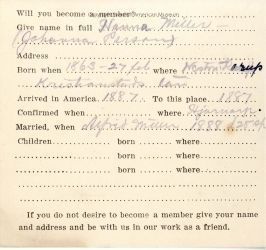 Will you become a member
Give name in full Hanna Miller
(Johanna Person)
Address
Born when 1863-27 feb where
Kristianstads län
Arrived in America 1887. To this place. 1887
Confirmed when where
Married, when Alfred Miller 1888
Children born where
born where
born where
If you do not desire to become a member give your name
and address and be with us in our work as a friend.